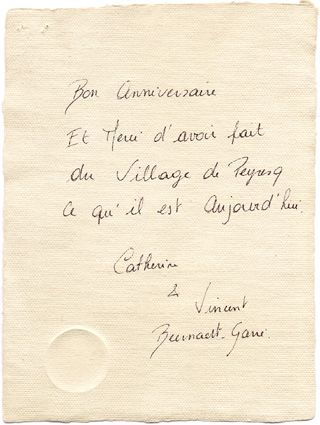 Bon Anniversaire
Et Merci d'avoir fait
du Village de Peyresq
ce qu'il est Aujourd'hui.
Catherine
&
Vincent